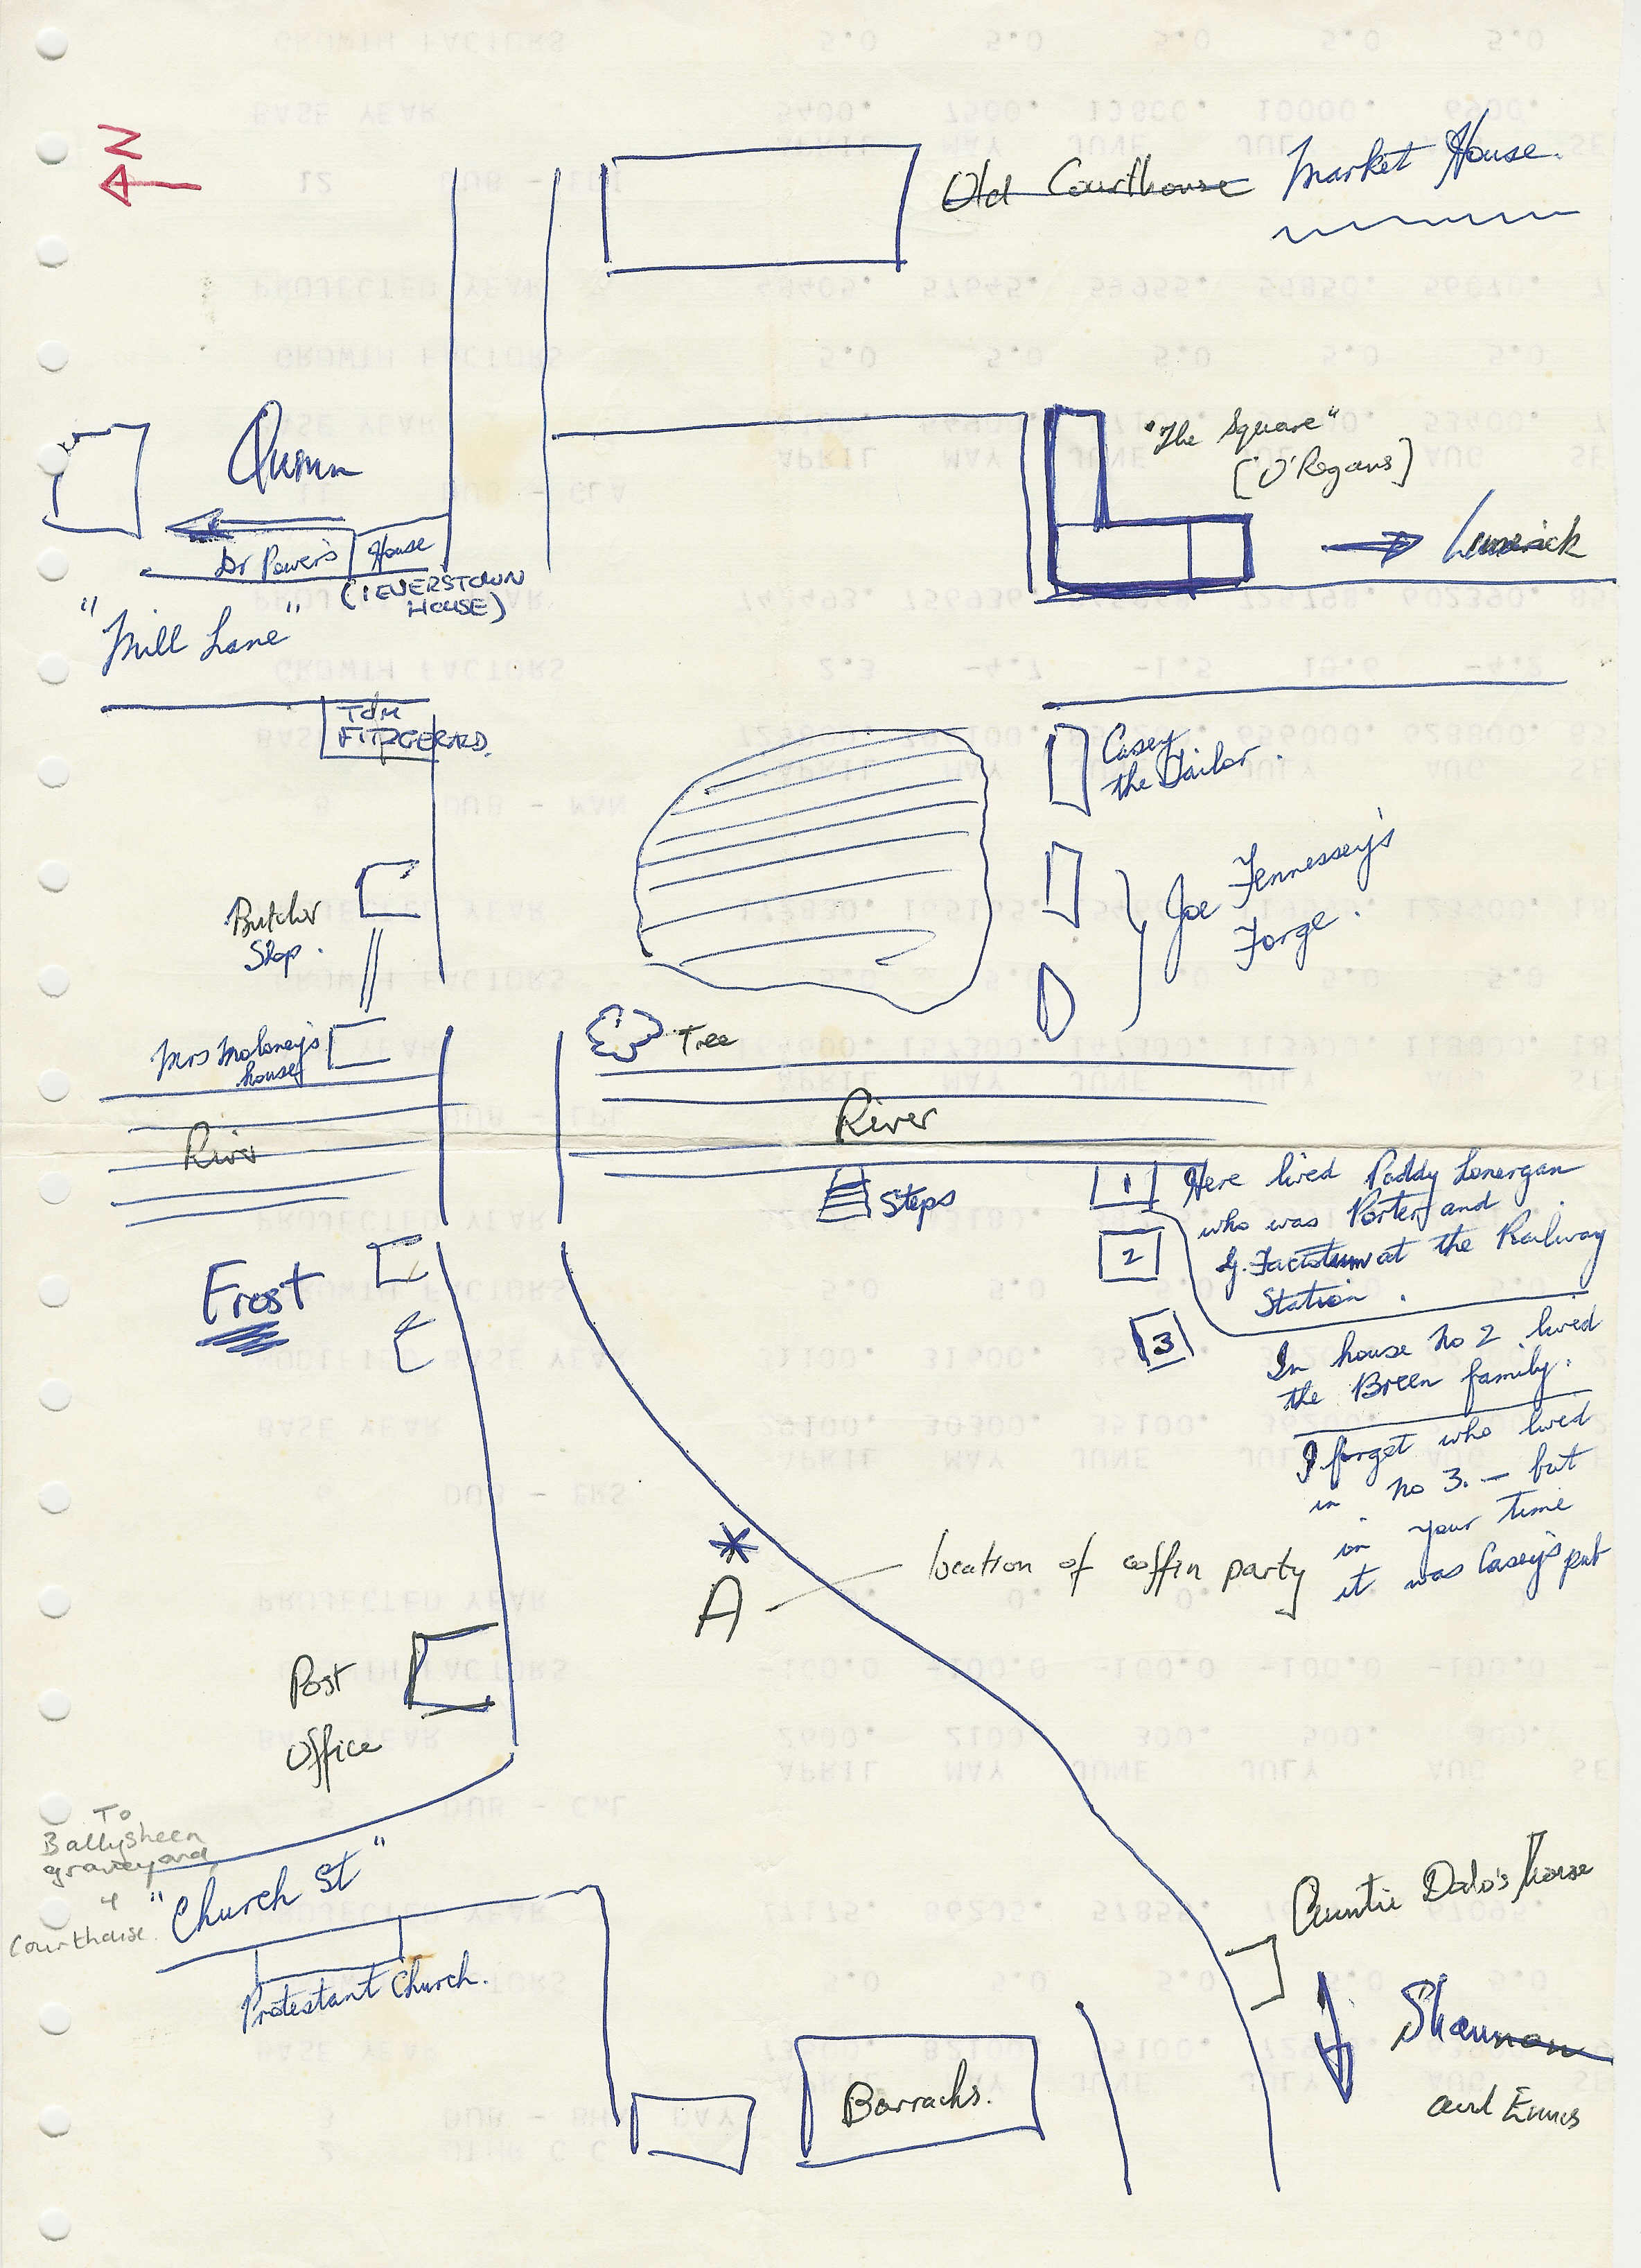 N
Old Courthouse Market House.
"The Square"
[O'Regans]
Quinn
Limerick
Dr Power's House
(IEVERSTOWN
HOUSE)
"Mill Lane"
TOM
FITZGERALD.
Casey
the Tailor.
Butcher
Shop.
Joe Fennessey's
Forge.
Tree
Mrs Moloney's
house
River
River
Steps
1
Here lived Paddy Lonergan
who was Porter and
G. Factotum at the Railway
Station.
2
3
In house no 2 lived
the Breen family.
I forget who lived
in no 3. — but
in your time
it was Casey's pub
Frost
A
location of coffin party
Post
Office
To
Ballysheen
graveyard
&
Courthouse.
"Church St"
Protestant Church.
Auntie Dalo's house
Shannon
and Ennis
Barracks.